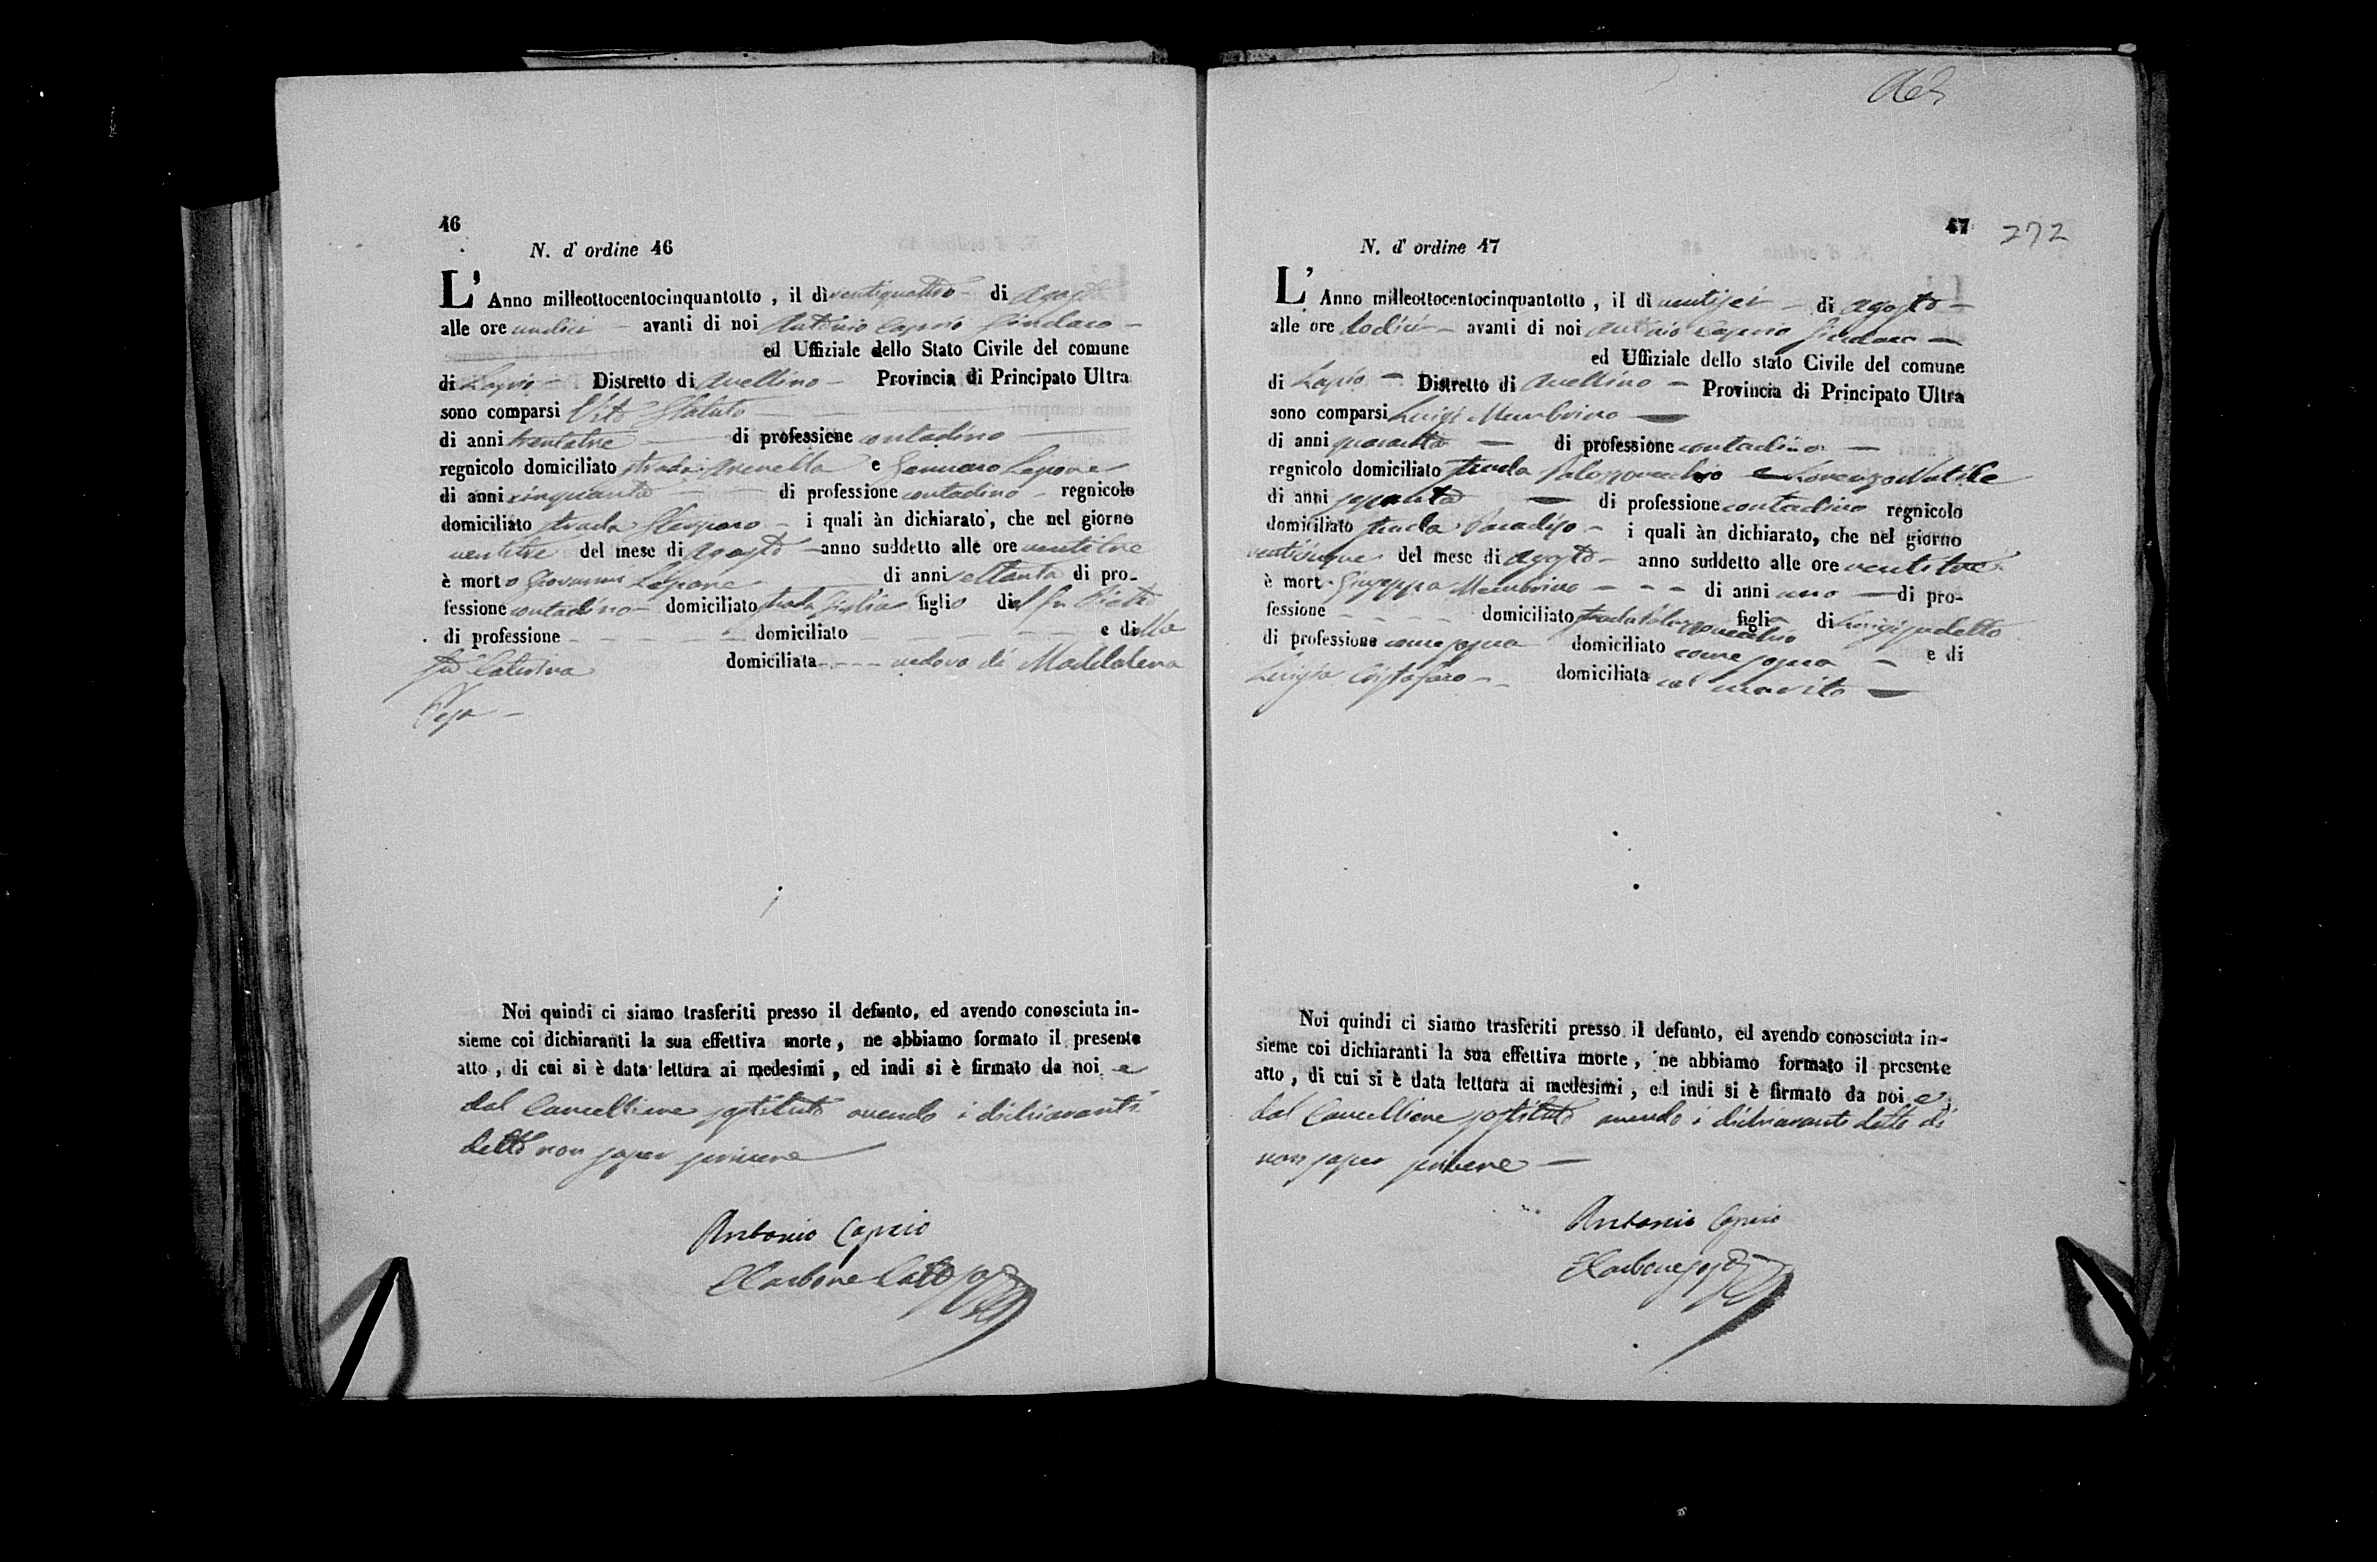 46
N. d' ordine 46
L' Anno milleottocentocinquantotto , il dì ventiquattro - di Agosto
alle ore undici - avanti di noi Antonio Caprio Sindaco -
ed Uffiziale dello Stato Civile del comune
di Lapio - Distretto di Avellino - Provincia di Principato Ultra
sono comparsi Vito
di anni trentatre di professione contadino
regnicolo domiciliato strada e Gennaro Lepore
di anni cinquanta di professione contadino - regnicolo
domiciliato strada - i quali àn dichiarato, che nel giorno
ventitre del mese di Agosto - anno suddetto alle ore ventitre
è morto Giovanni Lepore di anni settanta di pro-
fessione contadino - domiciliato strada figlio del fu Pietro
di professione - - - - - domiciliato - - e della
fu Caterina domiciliata - - - - vedovo di Maddalena
Noi quindi ci siamo trasferiti presso il defunto, ed avendo conosciuta in-
sieme coi dichiaranti la sua effettiva morte, ne abbiamo formato il presente
atto , di cui si è data lettura ai medesimi , ed indi si è firmato da noi e
dal Cancelliere sostituto avendo i dichiaranti
detto non saper scrivere
Antonio Caprio
47
272
N. d' ordine 47
L' Anno milleottocentocinquantotto , il dì ventisei - di Agosto -
alle ore dodici - avanti di noi Antonio Caprio Sindaco -
ed Uffiziale dello stato Civile del comune
di Lapio - Distretto di Avellino - Provincia di Principato Ultra
sono comparsi Luigi Membrino
di anni quaranta - di professione contadino -
regnicolo domiciliato strada Palazzovecchio e Lorenzo
di anni - di professione contadino regnicolo
domiciliato strada Paradiso - i quali àn dichiarato, che nel giorno
venticinque del mese di Agosto - anno suddetto alle ore ventitre
è mort Giuseppa Membrino - - - di anni uno - di pro-
fessione - - - - domiciliato strada Palazzovecchio figlia di Luigi sudetto
di professione come sopra domiciliato come sopra - e di
Luigia - - domiciliata col marito -
Noi quindi ci siamo trasferiti presso il defunto, ed avendo conosciuta in-
sieme coi dichiaranti la sua effettiva morte , ne abbiamo formato il presente
atto , di cui si è data lettura ai medesimi , ed indi si è firmato da noi e
dal Cancelliere sostituto avendo i dichiaranti detto di
non saper scrivere -
Antonio Caprio